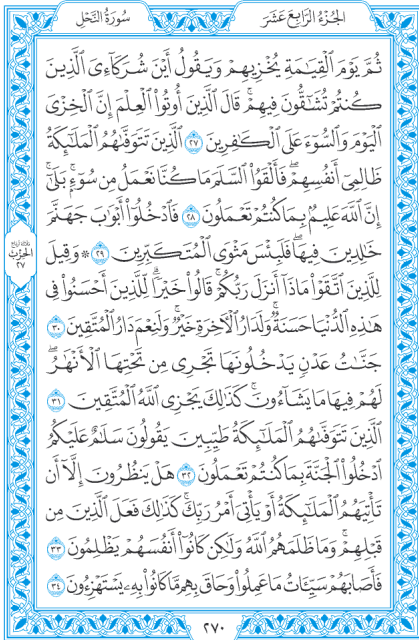 الجُزْءُ الرَّابِعَ عَشَرَ
سُورَةُ النَّحْلِ
ثُمَّ يَوْمَ ٱلْقِيَٰمَةِ يُخْزِيهِمْ وَيَقُولُ أَيْنَ شُرَكَآءِىَ ٱلَّذِينَ
كُنتُمْ تُشَٰٓقُّونَ فِيهِمْ ۚ قَالَ ٱلَّذِينَ أُوتُوا۟ ٱلْعِلْمَ إِنَّ ٱلْخِزْىَ
ٱلْيَوْمَ وَٱلسُّوٓءَ عَلَى ٱلْكَٰفِرِينَ ٢٧ ٱلَّذِينَ تَتَوَفَّىٰهُمُ ٱلْمَلَٰٓئِكَةُ
ظَالِمِىٓ أَنفُسِهِمْ ۖ فَأَلْقَوُا۟ ٱلسَّلَمَ مَا كُنَّا نَعْمَلُ مِن سُوٓءٍۭ ۚ بَلَىٰٓ
إِنَّ ٱللَّهَ عَلِيمٌۢ بِمَا كُنتُمْ تَعْمَلُونَ ٢٨ فَٱدْخُلُوٓا۟ أَبْوَٰبَ جَهَنَّمَ
خَٰلِدِينَ فِيهَا ۖ فَلَبِئْسَ مَثْوَى ٱلْمُتَكَبِّرِينَ ٢٩ ۞ وَقِيلَ
لِلَّذِينَ ٱتَّقَوْا۟ مَاذَآ أَنزَلَ رَبُّكُمْ ۚ قَالُوا۟ خَيْرًا ۗ لِّلَّذِينَ أَحْسَنُوا۟ فِى
هَٰذِهِ ٱلدُّنْيَا حَسَنَةٌ ۚ وَلَدَارُ ٱلْءَاخِرَةِ خَيْرٌ ۚ وَلَنِعْمَ دَارُ ٱلْمُتَّقِينَ ٣٠
جَنَّٰتُ عَدْنٍ يَدْخُلُونَهَا تَجْرِى مِن تَحْتِهَا ٱلْأَنْهَٰرُ ۖ
لَهُمْ فِيهَا مَا يَشَآءُونَ ۚ كَذَٰلِكَ يَجْزِى ٱللَّهُ ٱلْمُتَّقِينَ ٣١
ٱلَّذِينَ تَتَوَفَّىٰهُمُ ٱلْمَلَٰٓئِكَةُ طَيِّبِينَ ۙ يَقُولُونَ سَلَٰمٌ عَلَيْكُمُ
ٱدْخُلُوا۟ ٱلْجَنَّةَ بِمَا كُنتُمْ تَعْمَلُونَ ٣٢ هَلْ يَنظُرُونَ إِلَّآ أَن
تَأْتِيَهُمُ ٱلْمَلَٰٓئِكَةُ أَوْ يَأْتِىَ أَمْرُ رَبِّكَ ۚ كَذَٰلِكَ فَعَلَ ٱلَّذِينَ مِن
قَبْلِهِمْ ۚ وَمَا ظَلَمَهُمُ ٱللَّهُ وَلَٰكِن كَانُوٓا۟ أَنفُسَهُمْ يَظْلِمُونَ ٣٣
فَأَصَابَهُمْ سَيِّـَٔاتُ مَا عَمِلُوا۟ وَحَاقَ بِهِم مَّا كَانُوا۟ بِهِۦ يَسْتَهْزِءُونَ ٣٤
ثلاثة أرباع
الحزب
٢٧
٢٧٠